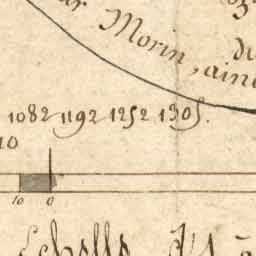 Morin, ain
1082 1192 1252 1305.
10
10 0
Echelle d'1 à